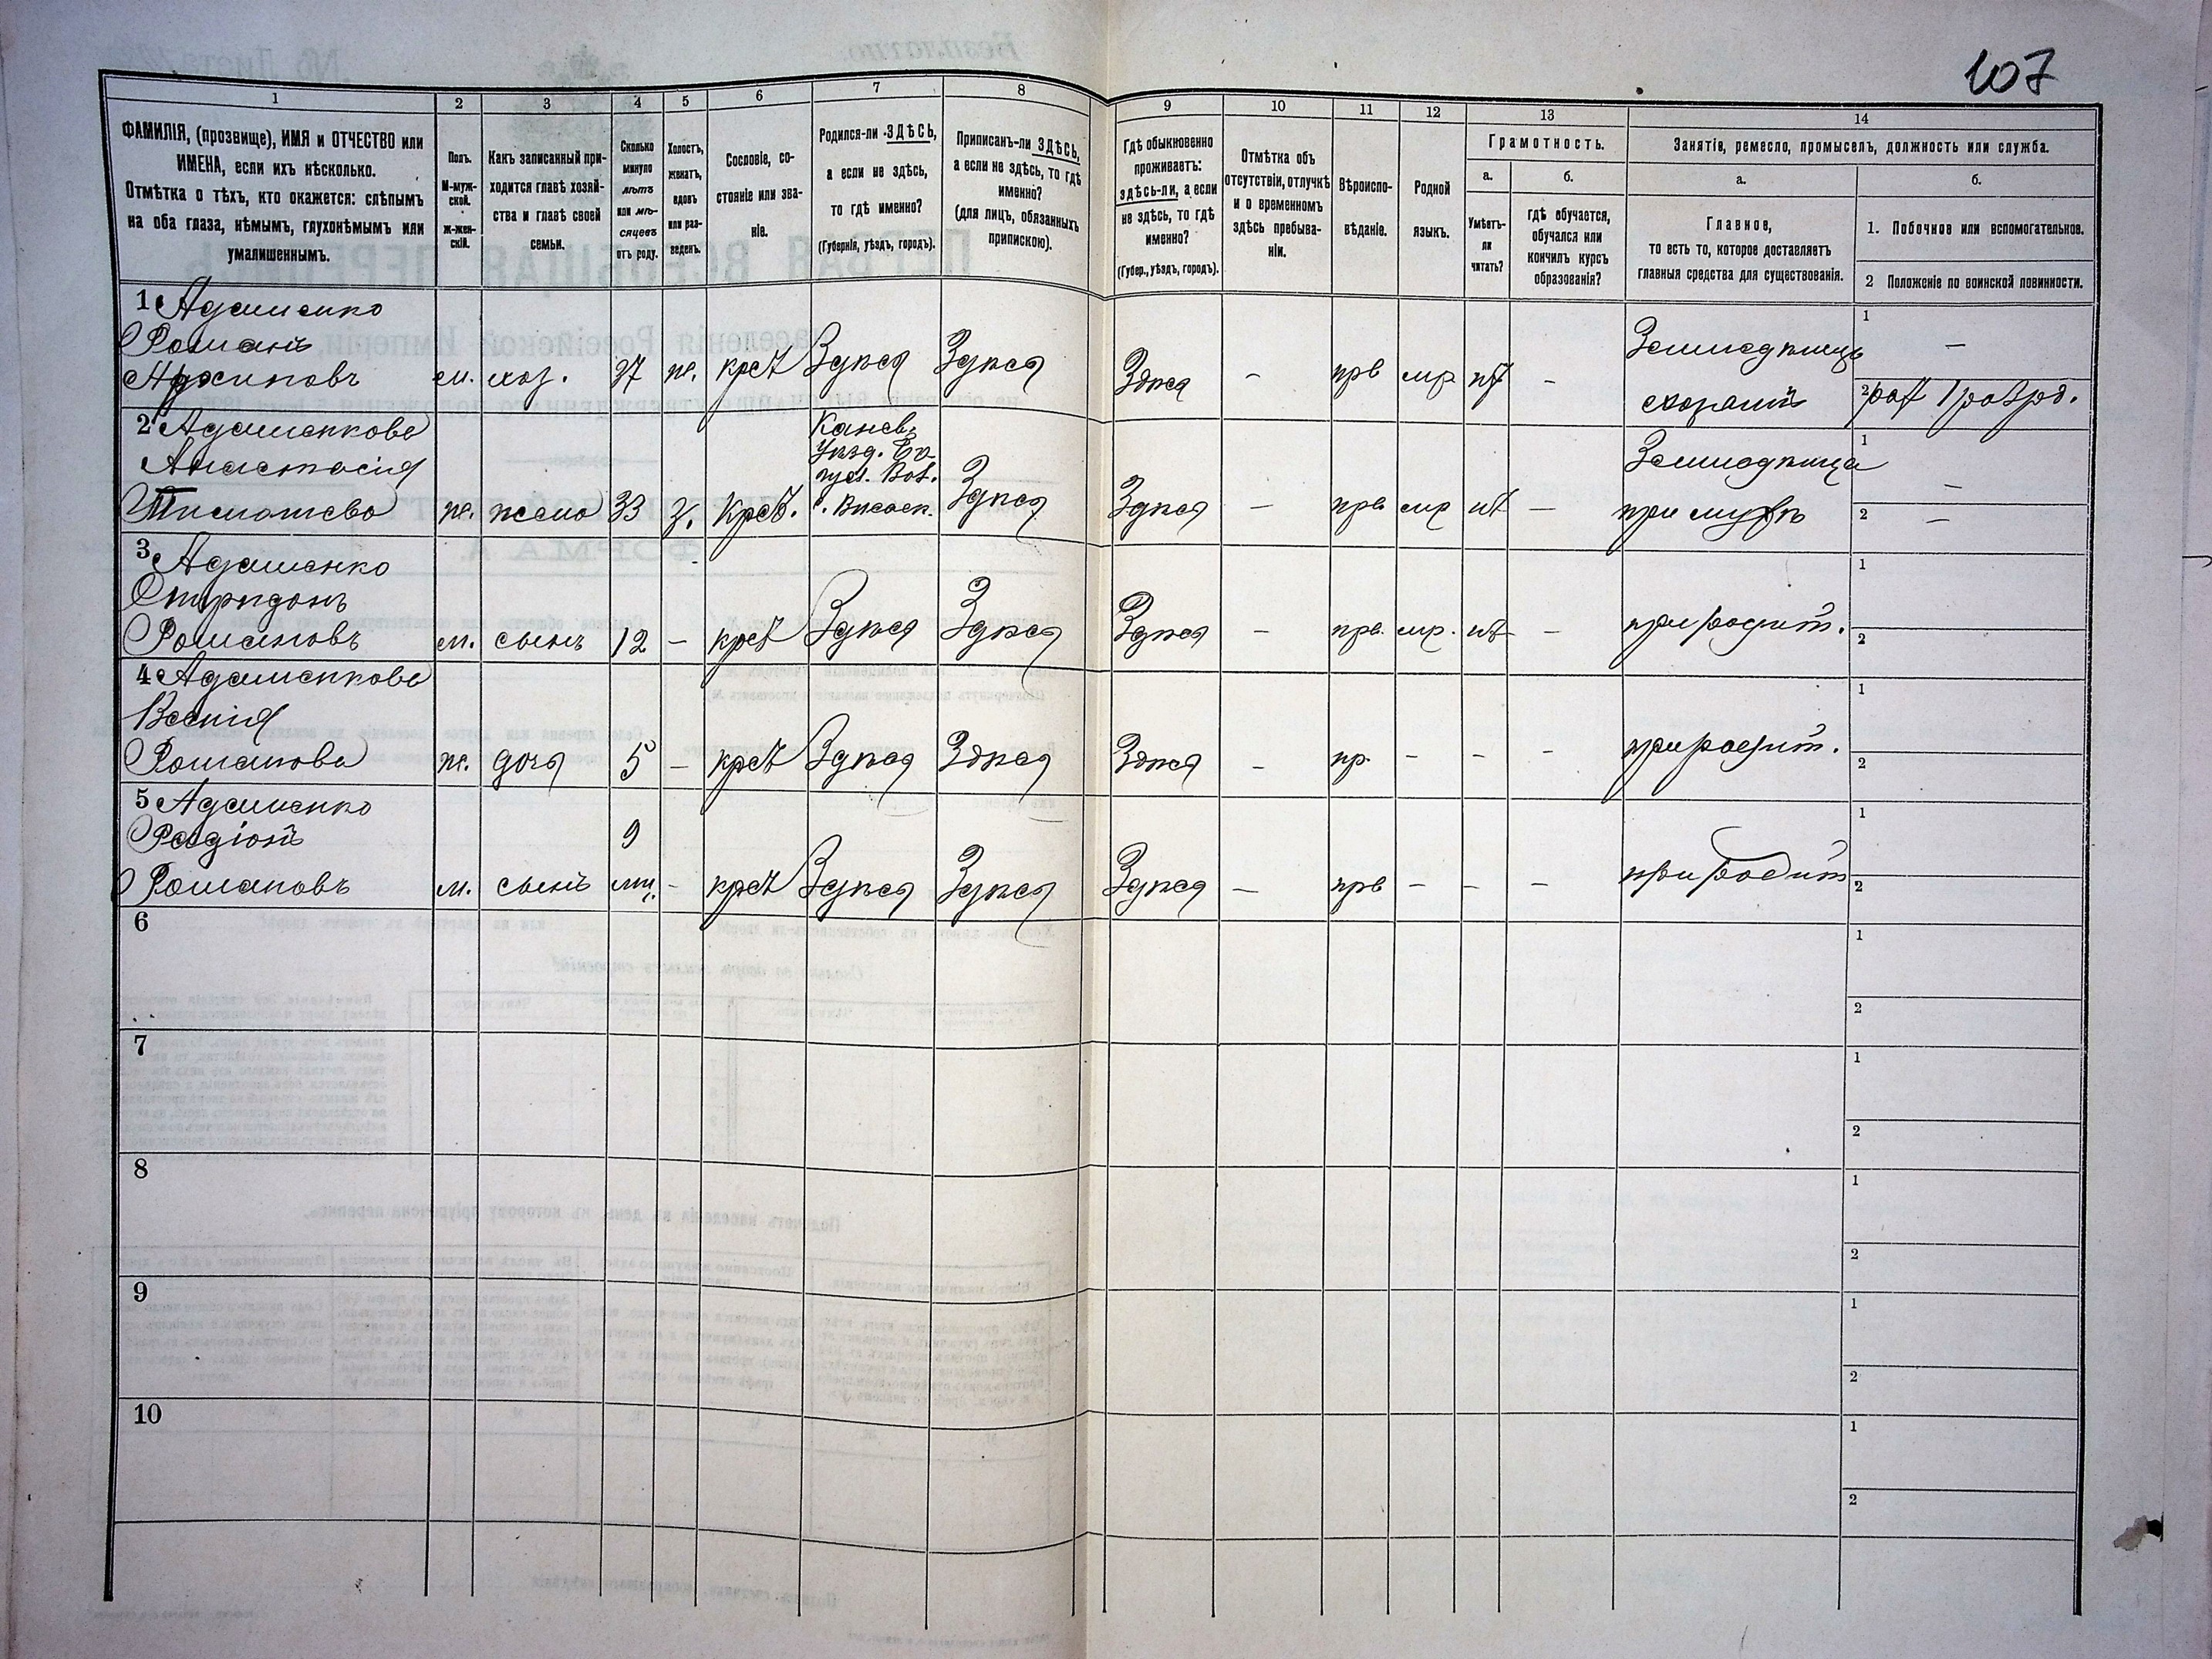 107
1 2 3 4 5 6 7 8 9 10 11 12 13 14
ФАМИЛІЯ, (прозвище), ИМЯ и ОТЧЕСТВО или
ИМЕНА, если ихъ нѣсколько.
Отмѣтка о тѣхъ, кто окажется: слѣпымъ
на оба глаза, нѣмымъ, глухонѣмымъ или
умалишеннымъ.
Полъ.
М-муж-
ской.
ж-жен-
скій.
Какъ записанный при-
ходится главѣ хозяй-
ства и главѣ своей
семьи.
Сколько
минуло
лѣтъ
или мѣ-
сяцевъ
отъ роду.
Холостъ,
женатъ,
вдовъ
или раз-
веденъ.
Сословіе, со-
стояніе или зва-
ніе.
Родился-ли ЗДѢСЬ,
а если не здѣсь,
то гдѣ именно?
(Губернія, уѣздъ, городъ).
Приписанъ-ли ЗДѢСЬ,
а если не здѣсь, то гдѣ
именно?
(для лицъ, обязанныхъ
припискою).
Гдѣ обыкновенно
проживаетъ:
здѣсь-ли, а если
не здѣсь, то гдѣ
именно?
(Губер., уѣздъ, городъ).
Отмѣтка объ
отсутствіи, отлучкѣ
и о временномъ
здѣсь пребыва-
ніи.
Вѣроиспо-
вѣданіе.
Родной
языкъ.
Грамотность.
а.
Умѣетъ-
ли
читать?
б.
гдѣ обучается,
обучался или
кончилъ курсъ
образованія?
Занятіе, ремесло, промыселъ, должность или служба.
а.
Главное,
то есть то, которое доставляетъ
главныя средства для существованія.
б.
1. Побочное или вспомогательное.
2 Положеніе по воинской повинности.
1 Адаменко
Романъ
Архиповъ м. хоз. 37 ж. крст Здѣся Здѣся Здѣся - прв мр нѣт -
Земледѣлецъ
1 -
2
2 Адаменкова
Анастасія
Тимошева ж. жена 33 з. Крст.
Канев.
Уѣзд.
Здѣся Здѣся - прв мр нѣт -
Земледѣлица
при мужѣ
1 -
2 -
3 Адаменко
Спиридонъ
Романовъ м. сынъ 12 - крст Здѣся Здѣся Здѣся - прв. мр. нѣт - при родит.
1
2
4 Адаменкова
Романова ж. дочь 5 - крст Здѣся Здѣся Здѣся - пр. - - - при родит.
1
2
5 Адаменко
Радіонъ
Романовъ м. сынъ 9 мц. - крст Здѣся Здѣся Здѣся - прв - - - при родит
1
2
6
1
2
7
1
2
8
1
2
9
1
2
10
1
2